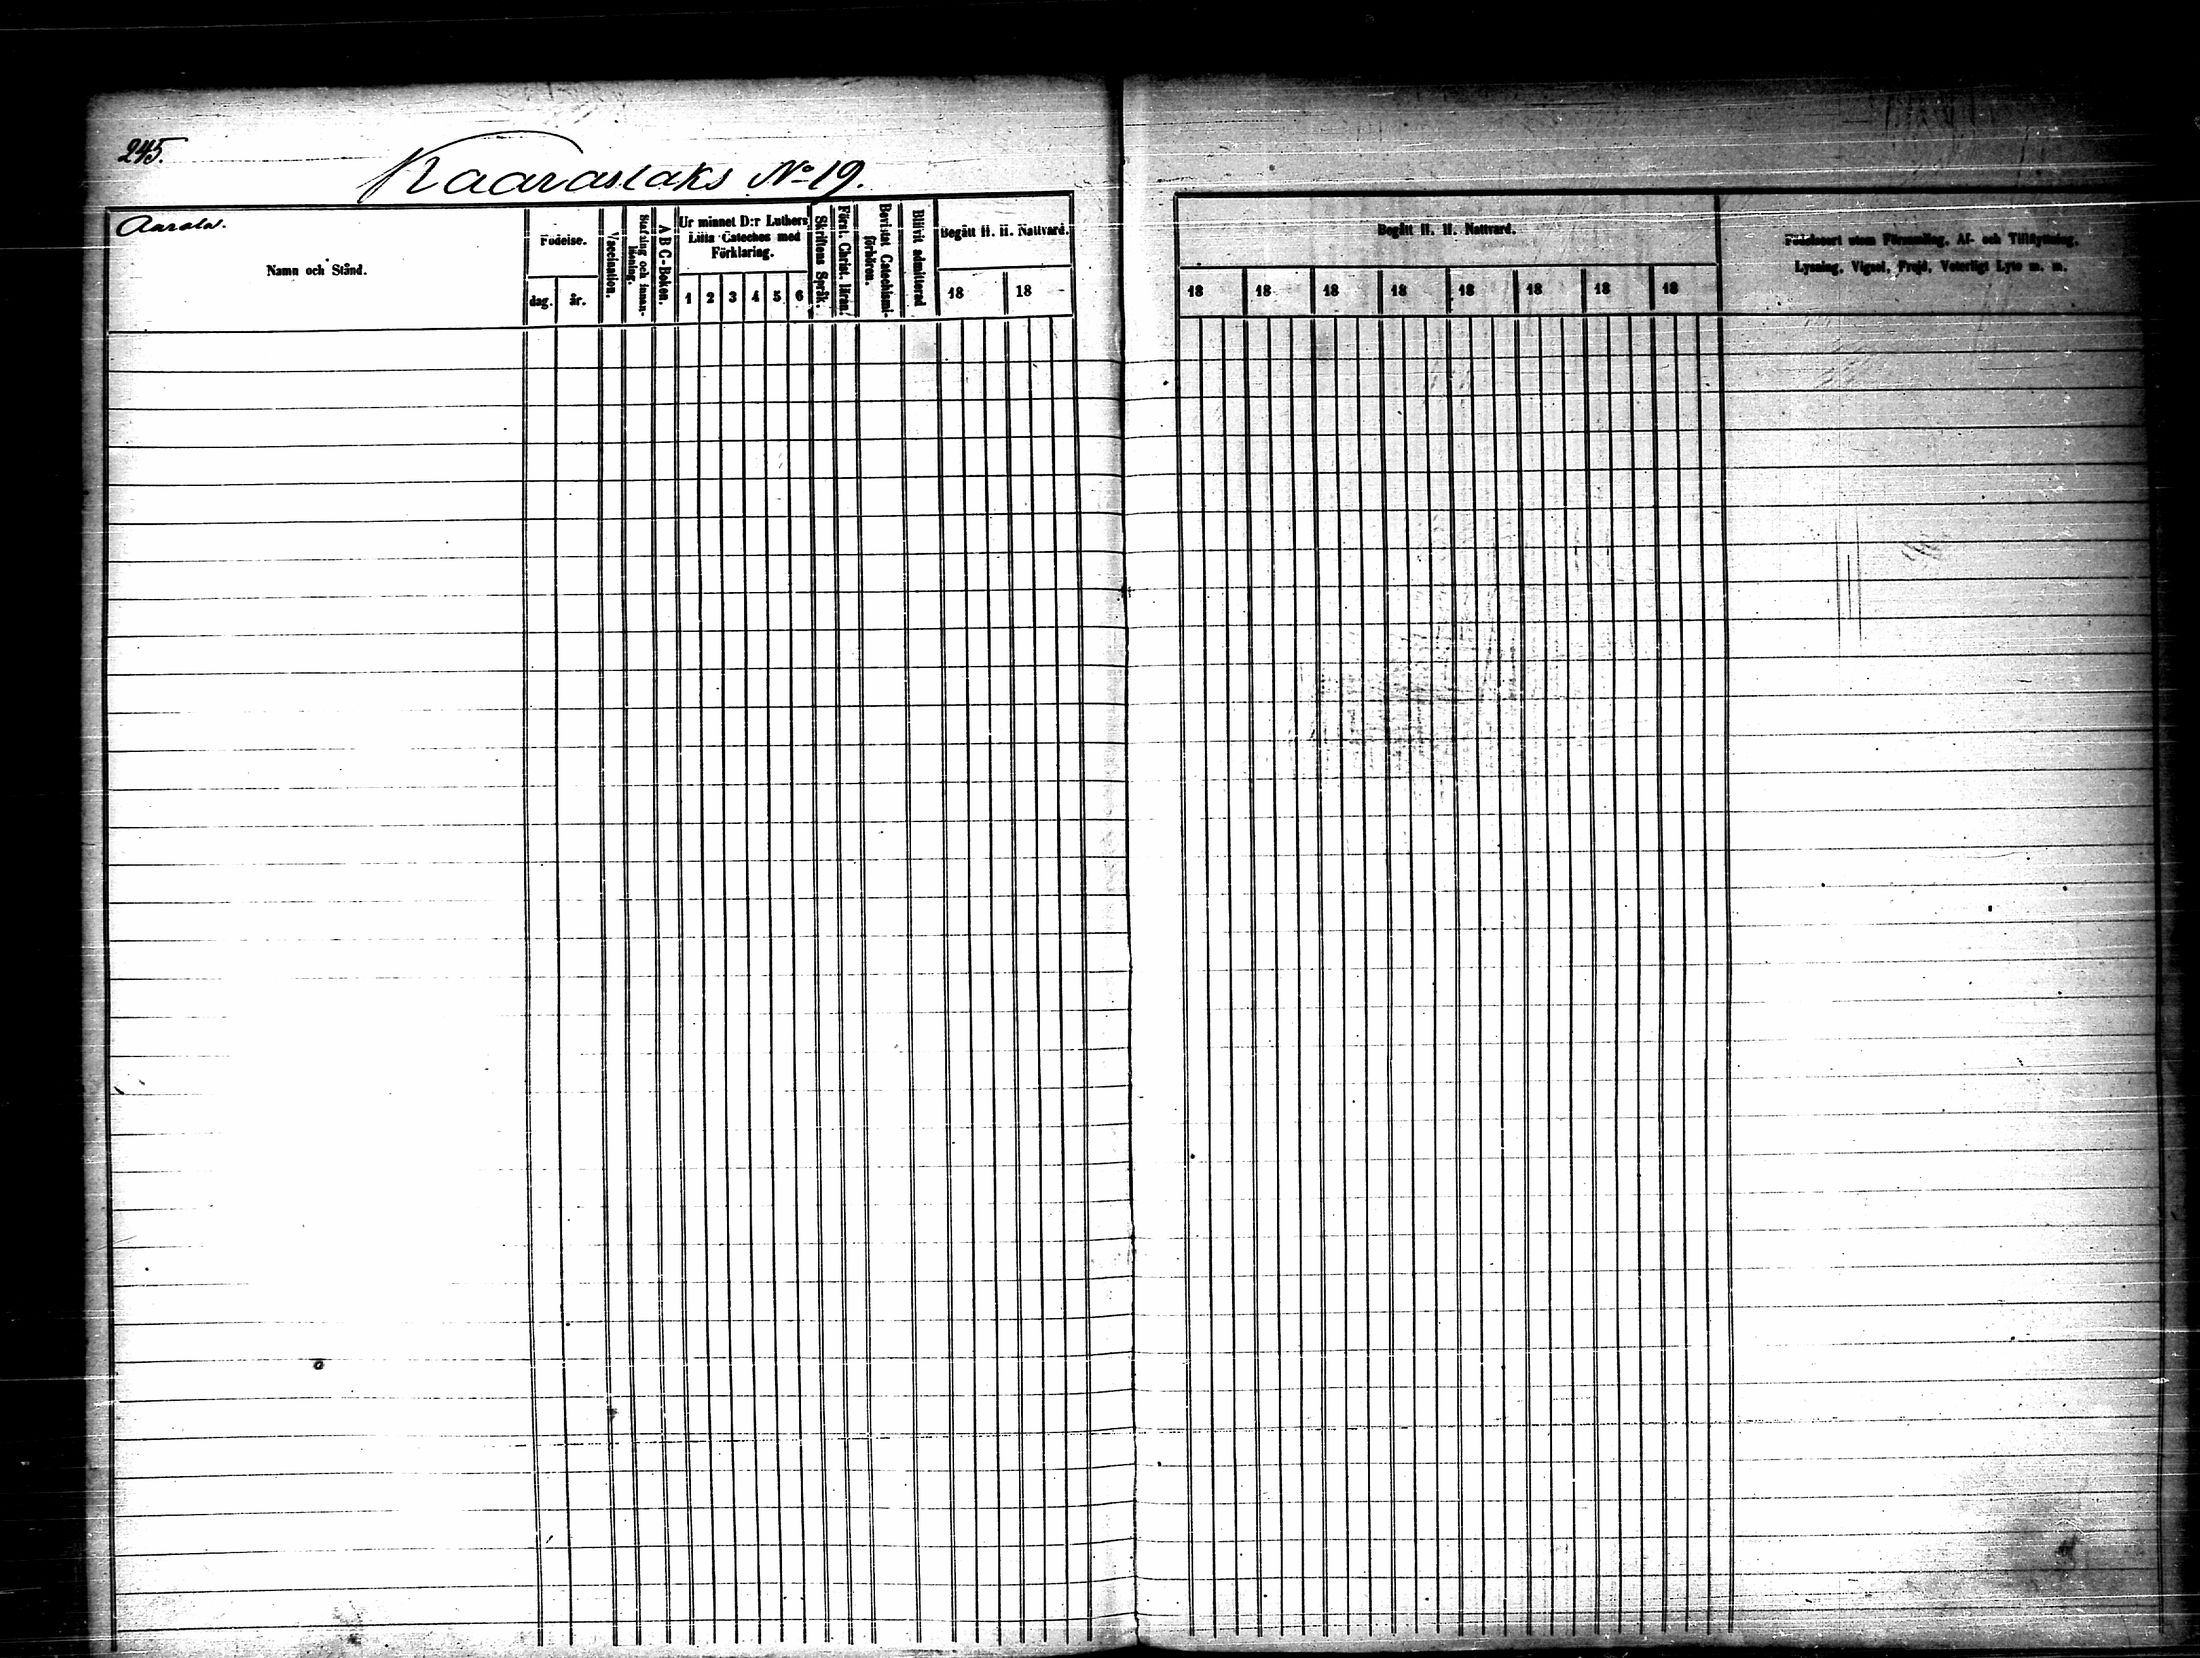 245.
Kaaraslaks No 19.
Aarala.
Namn och Stånd.
Födelse.
dag.
år.
Vaccination.
Stafning och innan-
läsning.
A B C-Boken.
Ur minnet D:r Luthers
Lilla Cateches med
Förklaring.
1 2 3 4 5 6
Skriftens Språk.
Förat. Christ. läran.
Bevistat Catechismi-
förhören.
Blivit admitterad
Begått H. H. Nattvard.
18 18
Begått H. H. Nattvard.
18 18 18 18 18 18 18 18
Födelseort utom Församling, Af- och Tillflyttning,
Lysning, Vigsel, Frejd, Veterligt Lyte m. m.